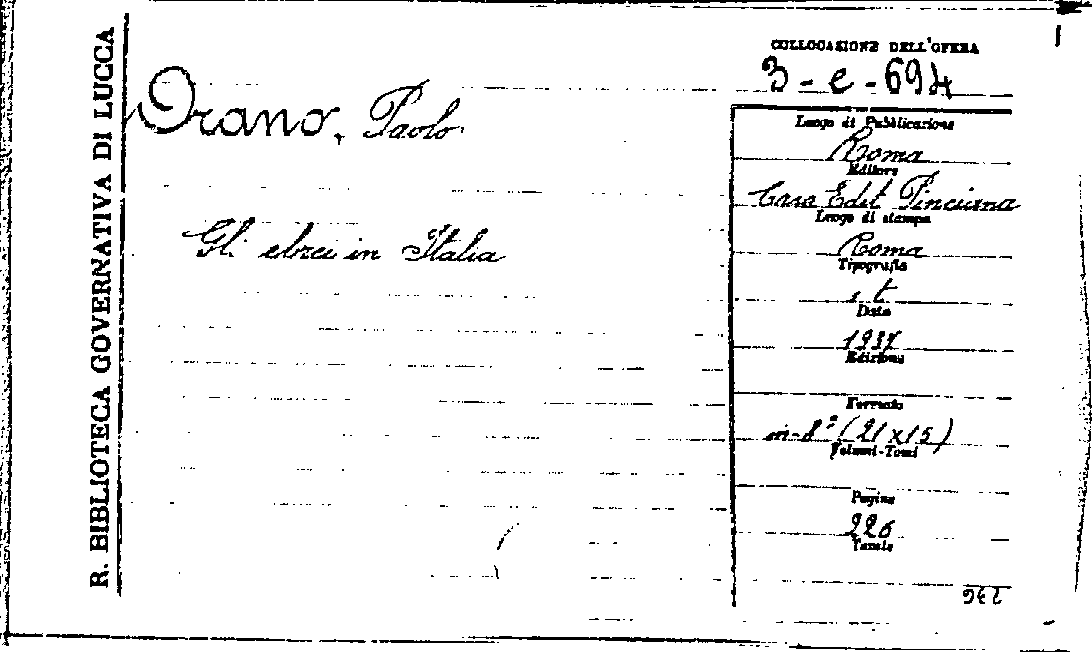 R. BIBLIOTECA GOVERNATIVA DI LUCCA
Orano, Paolo
Gli ebrei in Italia
COLLOCAZIONE DELL'OPERA
3-e-694
Luogo di Pubblicazione
Roma
Editore
Casa Edit Pinciana
Luogo di stampa
Roma
Tipografia
s. t
Data
1937
Edizione
Formato
in-8° (21x15)
Volumi-Tomi
Pagine
226
Tavole